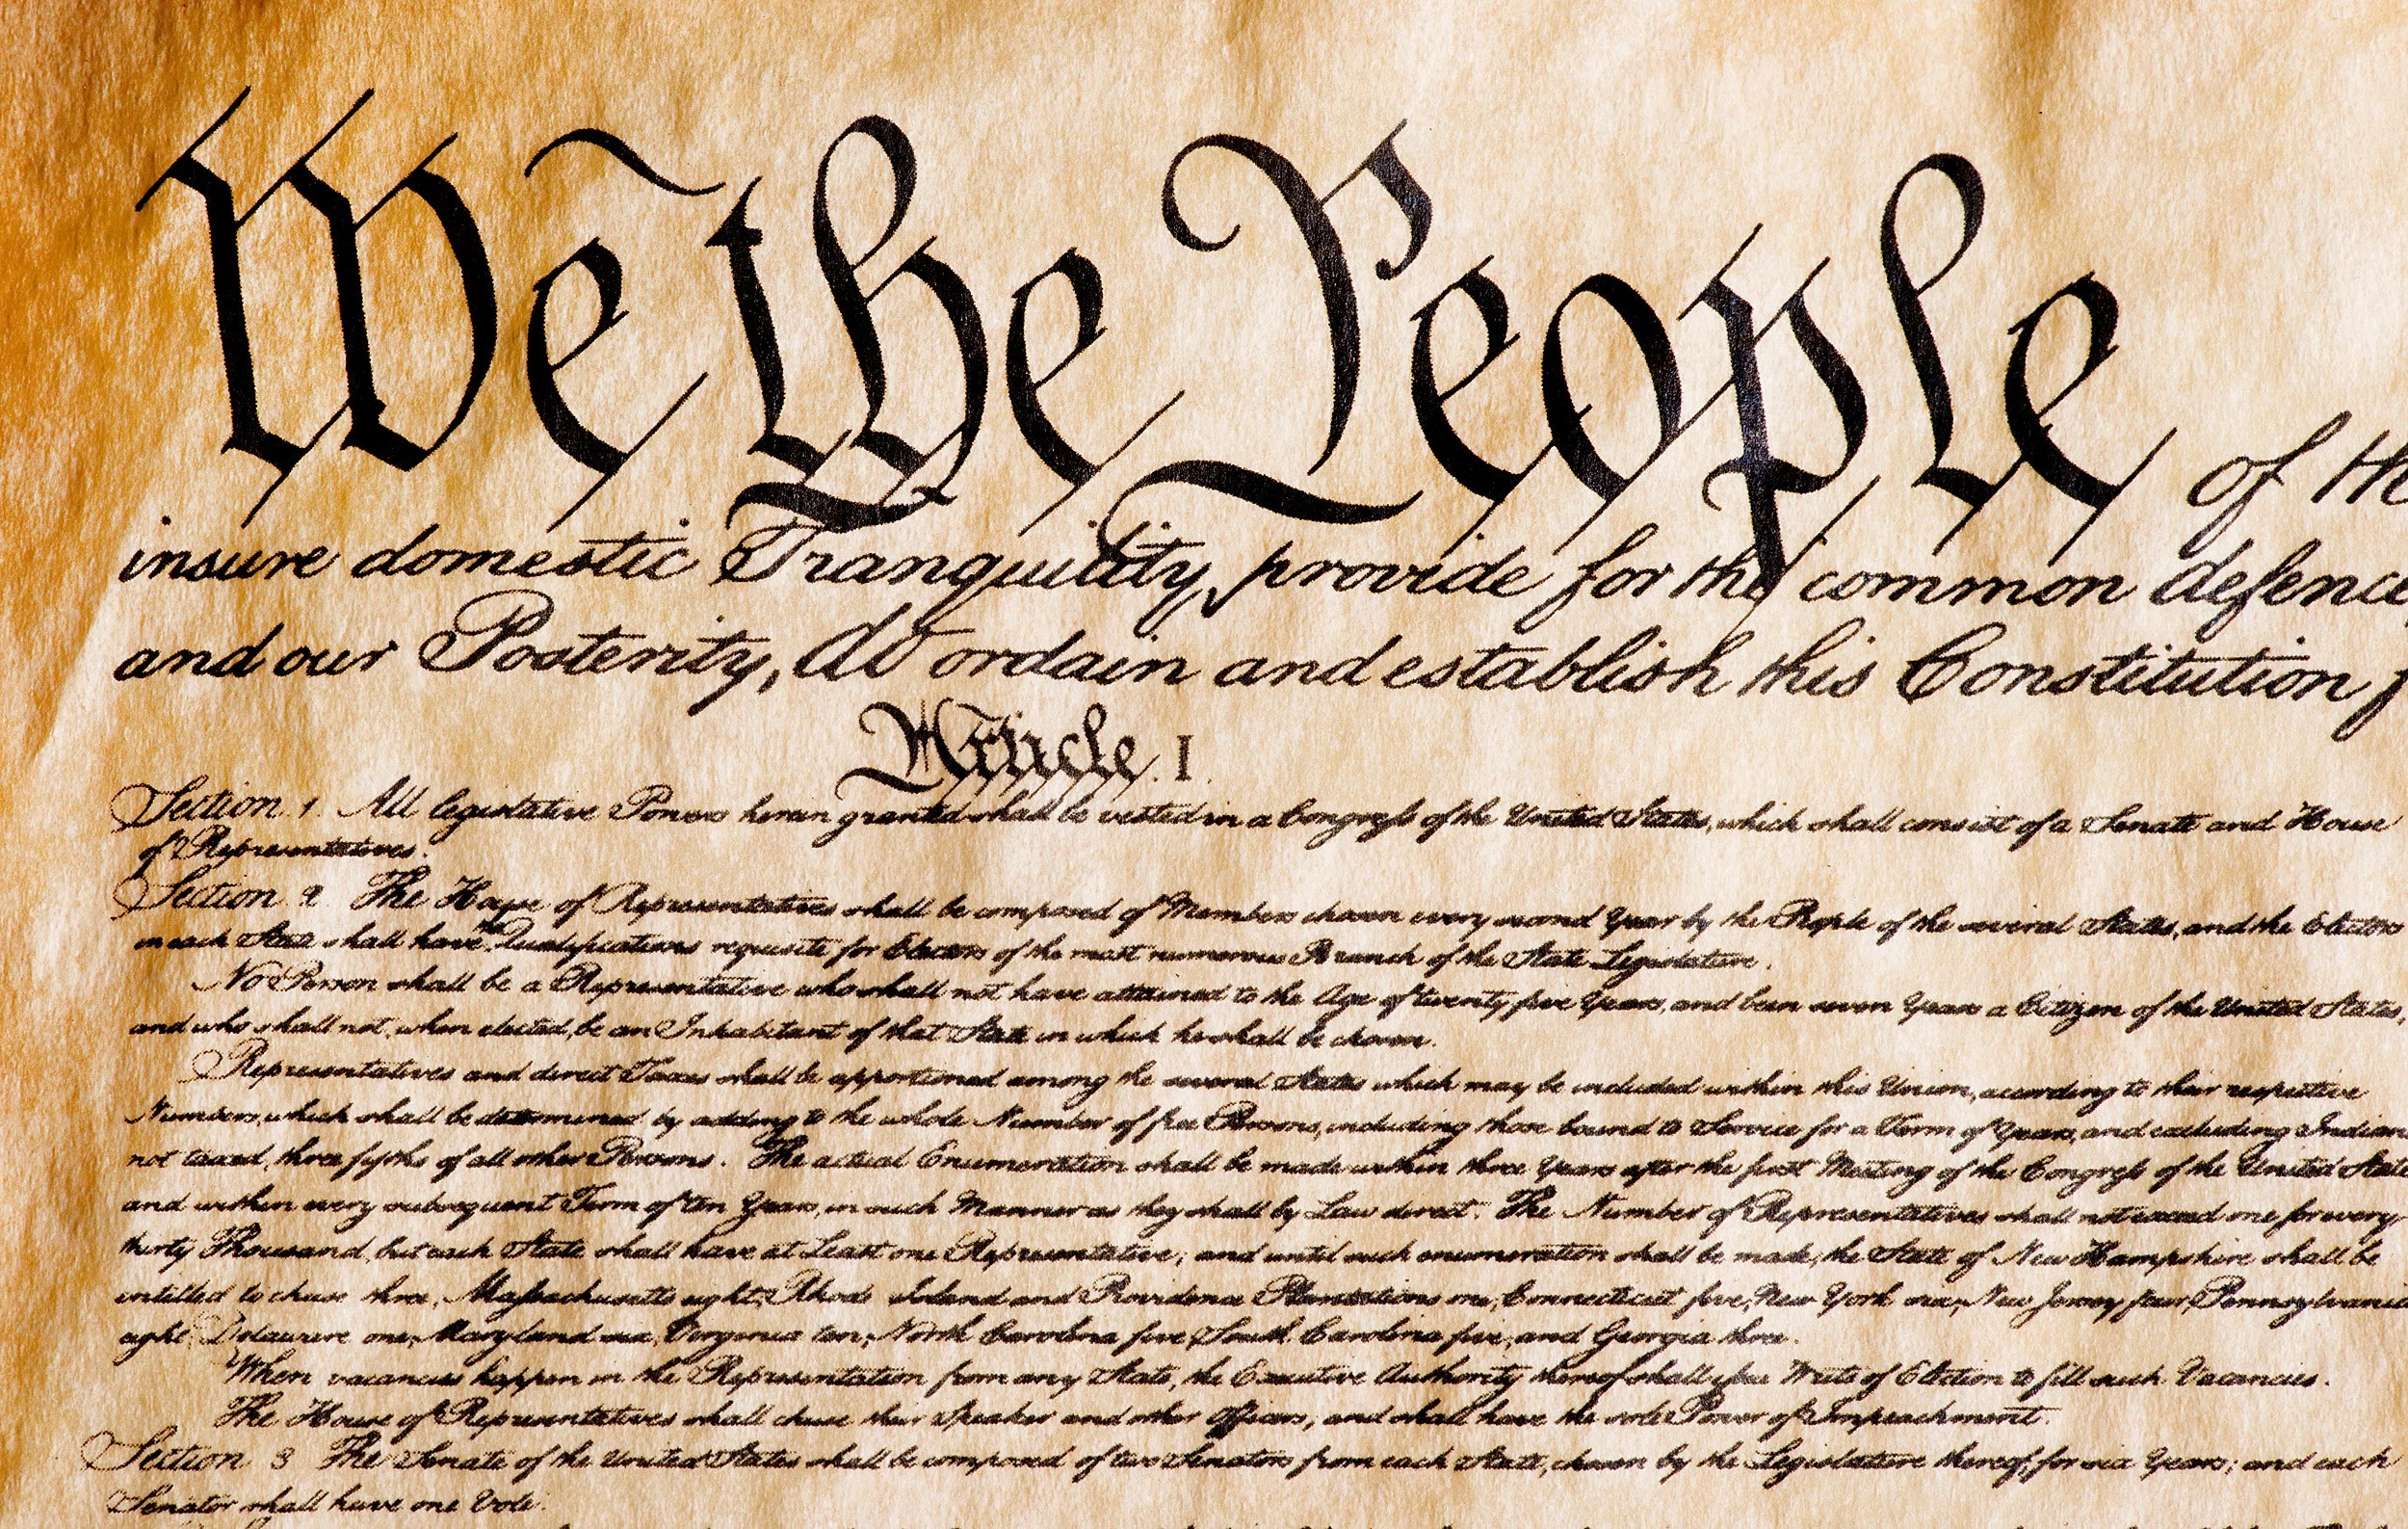 We the People of the
insure domestic Tranquility, provide for the common defence
and our Posterity, do ordain and establish this Constitution f
Article. I.
Section. 1. All legislative Powers herein granted shall be vested in a Congress of the United States, which shall consist of a Senate and House
of Representatives.
Section. 2. The House of Representatives shall be composed of Members chosen every second Year by the People of the several States, and the Electors
in each State shall have the Qualifications requisite for Electors of the most numerous Branch of the State Legislature.
No Person shall be a Representative who shall not have attained to the Age of twenty five Years, and been seven Years a Citizen of the United States,
and who shall not, when elected, be an Inhabitant of that State in which he shall be chosen.
Representatives and direct Taxes shall be apportioned among the several States which may be included within this Union, according to their respective
Numbers, which shall be determined by adding to the whole Number of free Persons, including those bound to Service for a Term of Years, and excluding Indians
not taxed, three fifths of all other Persons. The actual Enumeration shall be made within three Years after the first Meeting of the Congress of the United State
and within every subsequent Term of ten Years, in such Manner as they shall by Law direct. The Number of Representatives shall not exceed one for every
thirty Thousand, but each State shall have at Least one Representative; and until such enumeration shall be made, the State of New Hampshire shall be
entitled to chuse three, Massachusetts eight, Rhode Island and Providence Plantations one, Connecticut five, New York six, New Jersey four, Pennsylvania
eight, Delaware one, Maryland six, Virginia ten, North Carolina five, South Carolina five, and Georgia three.
When vacancies happen in the Representation from any State, the Executive Authority thereof shall issue Writs of Election to fill such Vacancies.
The House of Representatives shall chuse their Speaker and other Officers; and shall have the sole Power of Impeachment.
Section. 3. The Senate of the United States shall be composed of two Senators from each State, chosen by the Legislature thereof, for six Years; and each
Senator shall have one Vote.